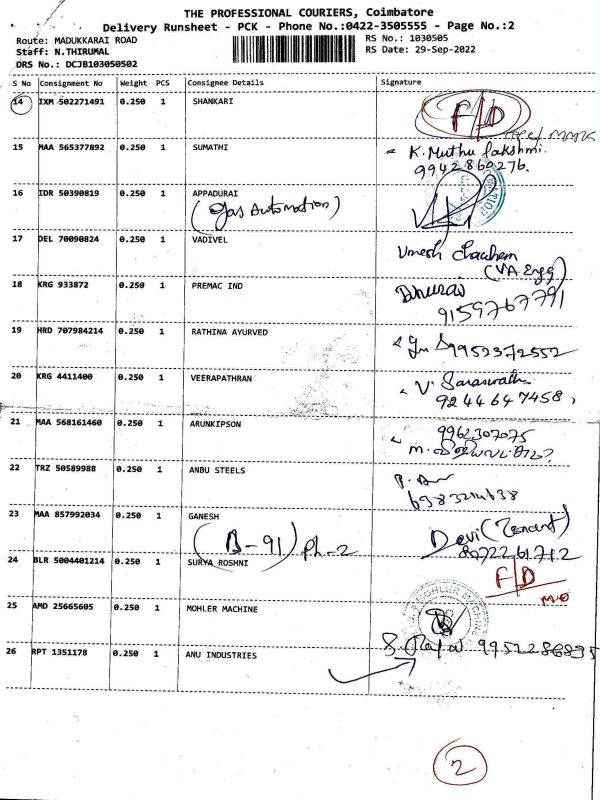 THE PROFESSIONAL COURIERS, Coimbatore
Delivery Runsheet - PCK - Phone No.:0422-3505555 - Page No.:2
Route: MADUKKARAI ROAD RS No.: 1030505
Staff: N.THIRUMAL RS Date: 29-Sep-2022
DRS No.: DCJB103050502
S No Consignment No Weight PCS Consignee Details Signature
14 IXM 502271491 0.250 1 SHANKARI F/D
15 MAA 565377892 0.250 1 SUMATHI K. Muthu Lakshmi.
9942860276.
16 IDR 50390819 0.250 1 APPADURAI
(Gas Automation)
17 DEL 70090824 0.250 1 VADIVEL Umesh
(VA Engg)
18 KRG 933872 0.250 1 PREMAC IND
9159767791
19 HRD 707984214 0.250 1 RATHINA AYURVED 9952372552
20 KRG 4411400 0.250 1 VEERAPATHRAN V. Saraswathi
9244647458
21 MAA 568161460 0.250 1 ARUNKIPSON 9962307075
22 TRZ 50589988 0.250 1 ANBU STEELS
23 MAA 857992034 0.250 1 GANESH Devi (Tenant)
(B-91) Ph-2
24 BLR 5004401214 0.250 1 SURYA ROSHNI F/D
25 AMD 25665605 0.250 1 MOHLER MACHINE
26 RPT 1351178 0.250 1 ANU INDUSTRIES 9952286835
2